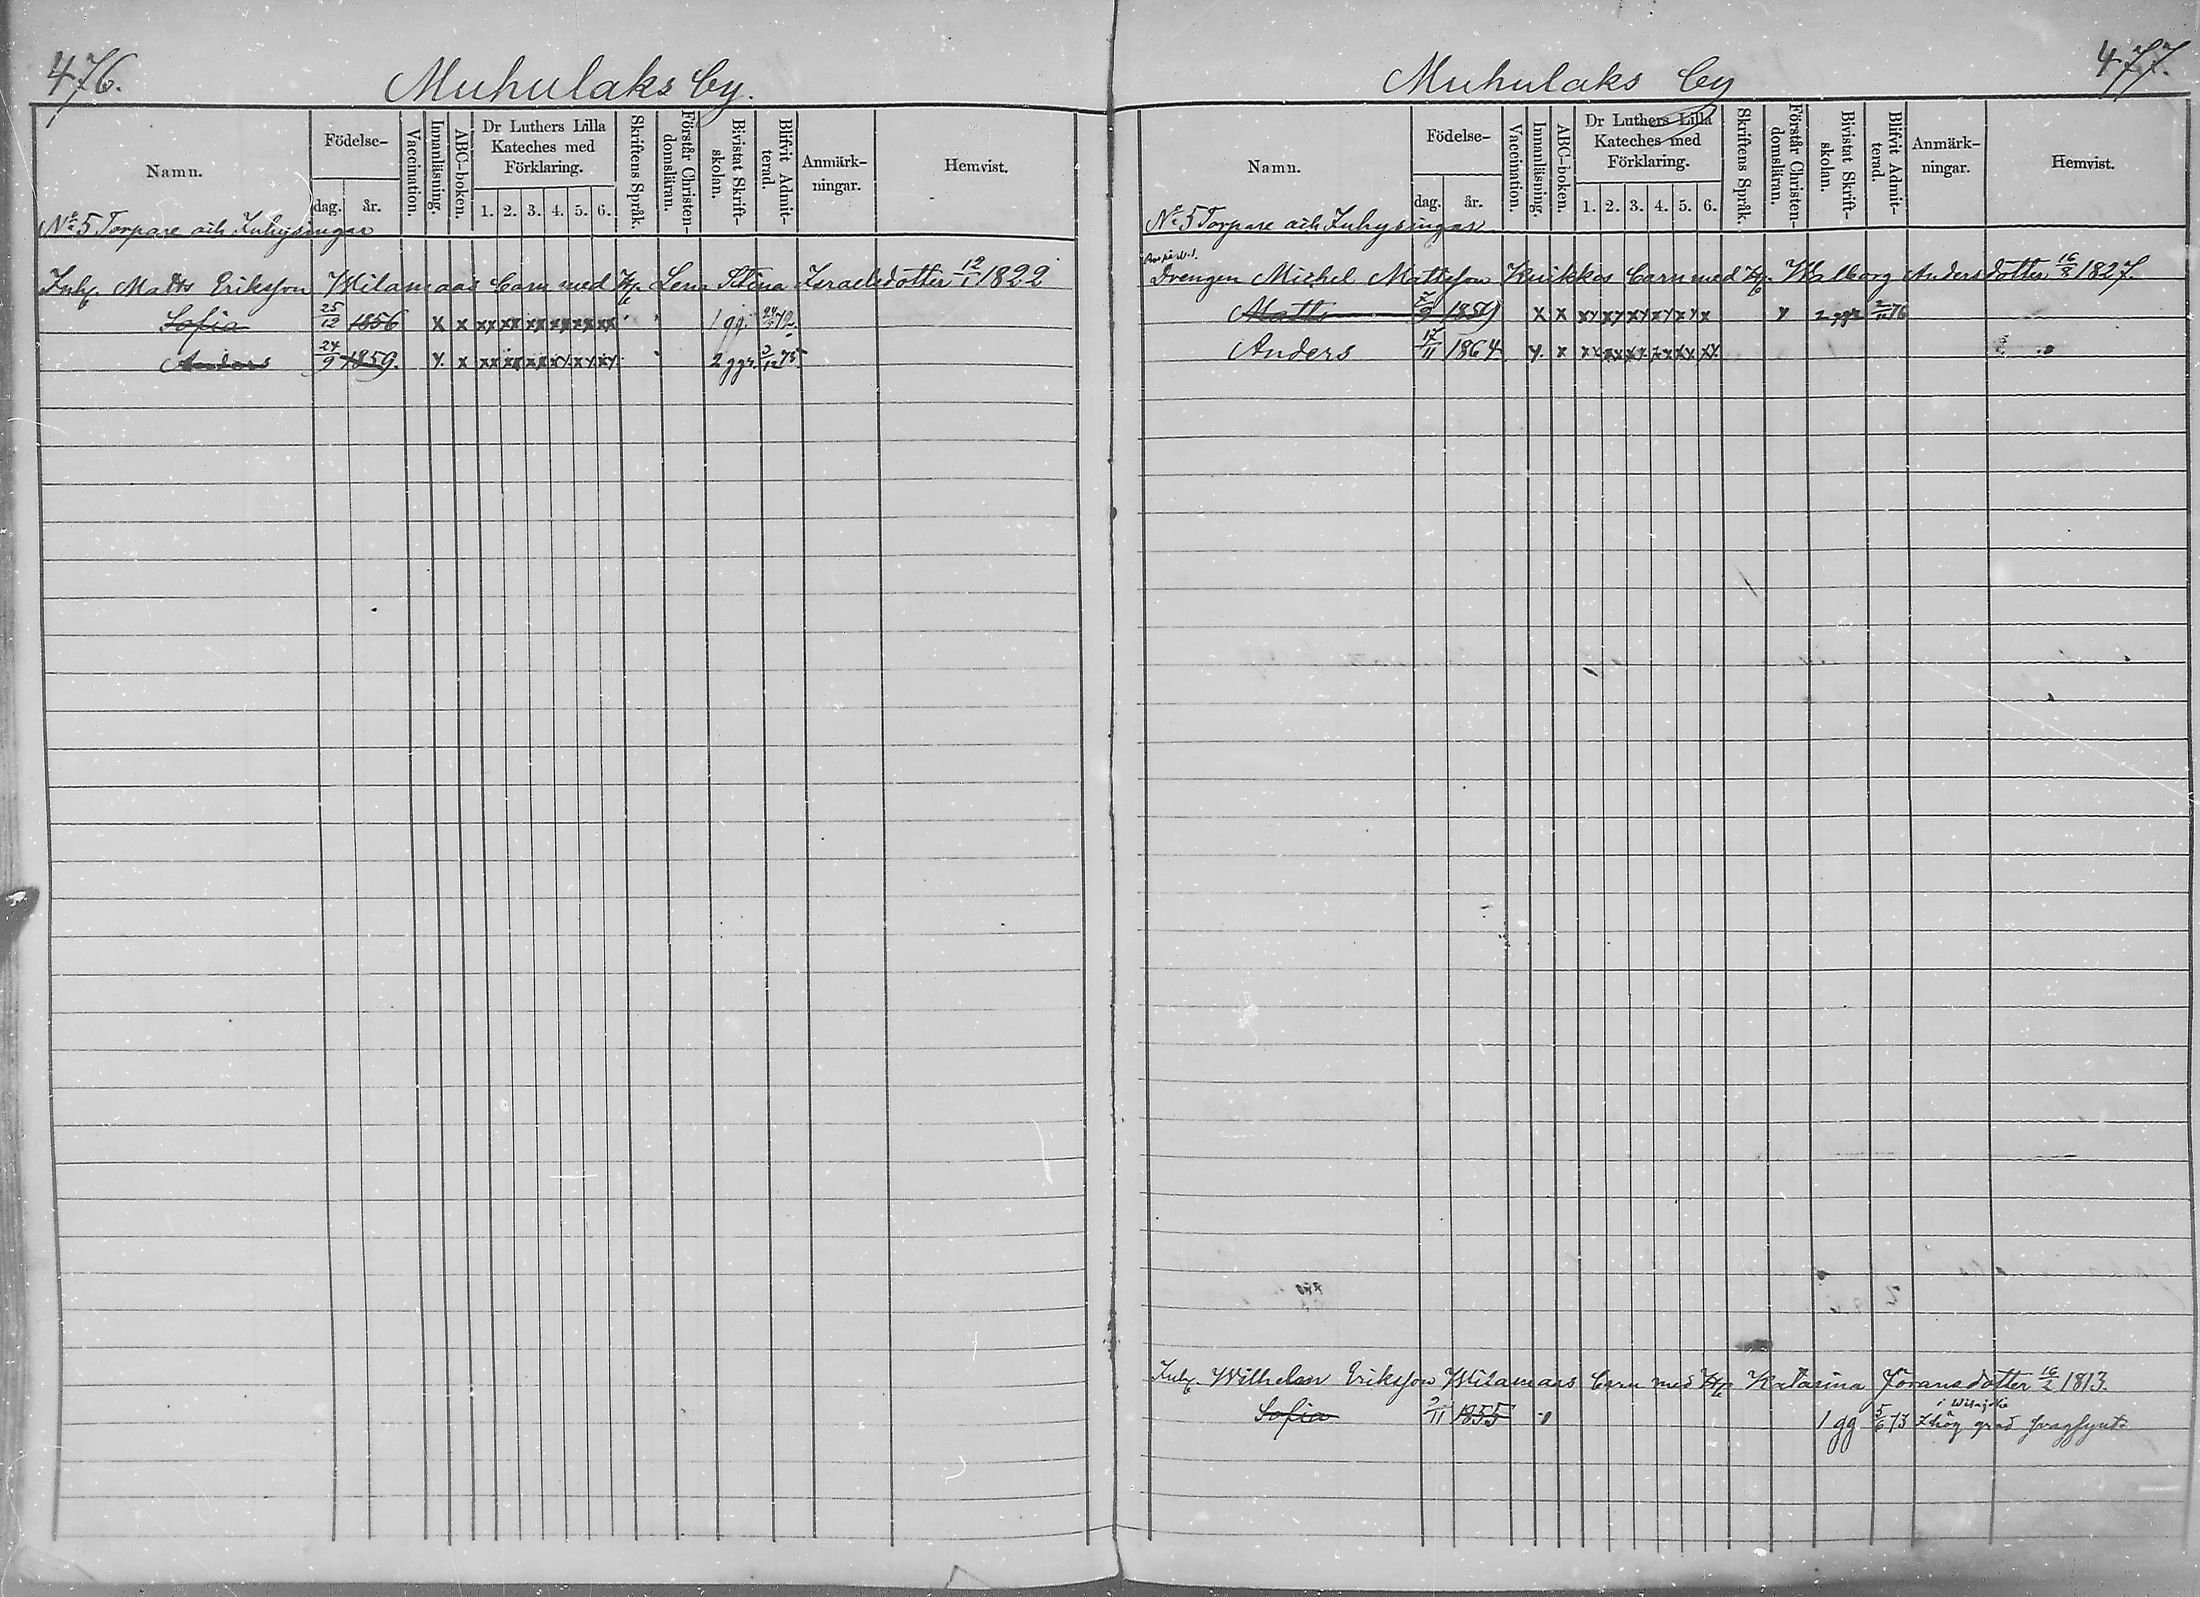 476.
Muhulaks by.
Namn.
Födelse-
dag.
år.
Vaccination.
Innanläsning.
ABC-boken.
Dr Luthers Lilla
Kateches med
Förklaring.
1. 2. 3. 4. 5. 6.
Skriftens Språk.
Förstår Christen-
domsläran.
Bivistat Skrift-
skolan.
Blifvit Admit-
terad.
Anmärk-
ningar.
Hemvist.
No 5 Torpare och Inhysingar
Inh. Matts Eriksson Witamaas barn med H. Lena Stina Israelsdotter 12/1 1822
Sofia 25/12 1856 x x xx xx xx xx xx xx 1 gg.
Anders 24/9 1859. x x xx xx xx xx xx xx 2 ggr. 75.
477.
Muhulaks by
Namn.
Födelse-
dag.
år.
Vaccination.
Innanläsning.
ABC-boken.
Dr Luthers Lilla
Kateches med
Förklaring.
1. 2. 3. 4. 5. 6.
Skriftens Språk.
Förstår Christen-
domsläran.
Bivistat Skrift-
skolan.
Blifvit Admit-
terad.
Anmärk-
ningar.
Hemvist.
No 5 Torpare och Inhysingar
Drengen Michel Mattsson Kuikkas barn med H. Walborg Andersdotter 16/8 1827.
Matts 1859 x x xx xx xx xx xx x x 2 ggr 76
Anders 17/11 1864 x x xx xx xx xx xx xx
Inh. Wilhelm Eriksson Witamaas barn med H. Katarina Jöransdotter 16/2 1813.
Sofia 1855 1 gg 5/6 73 I hög grad svagsynt